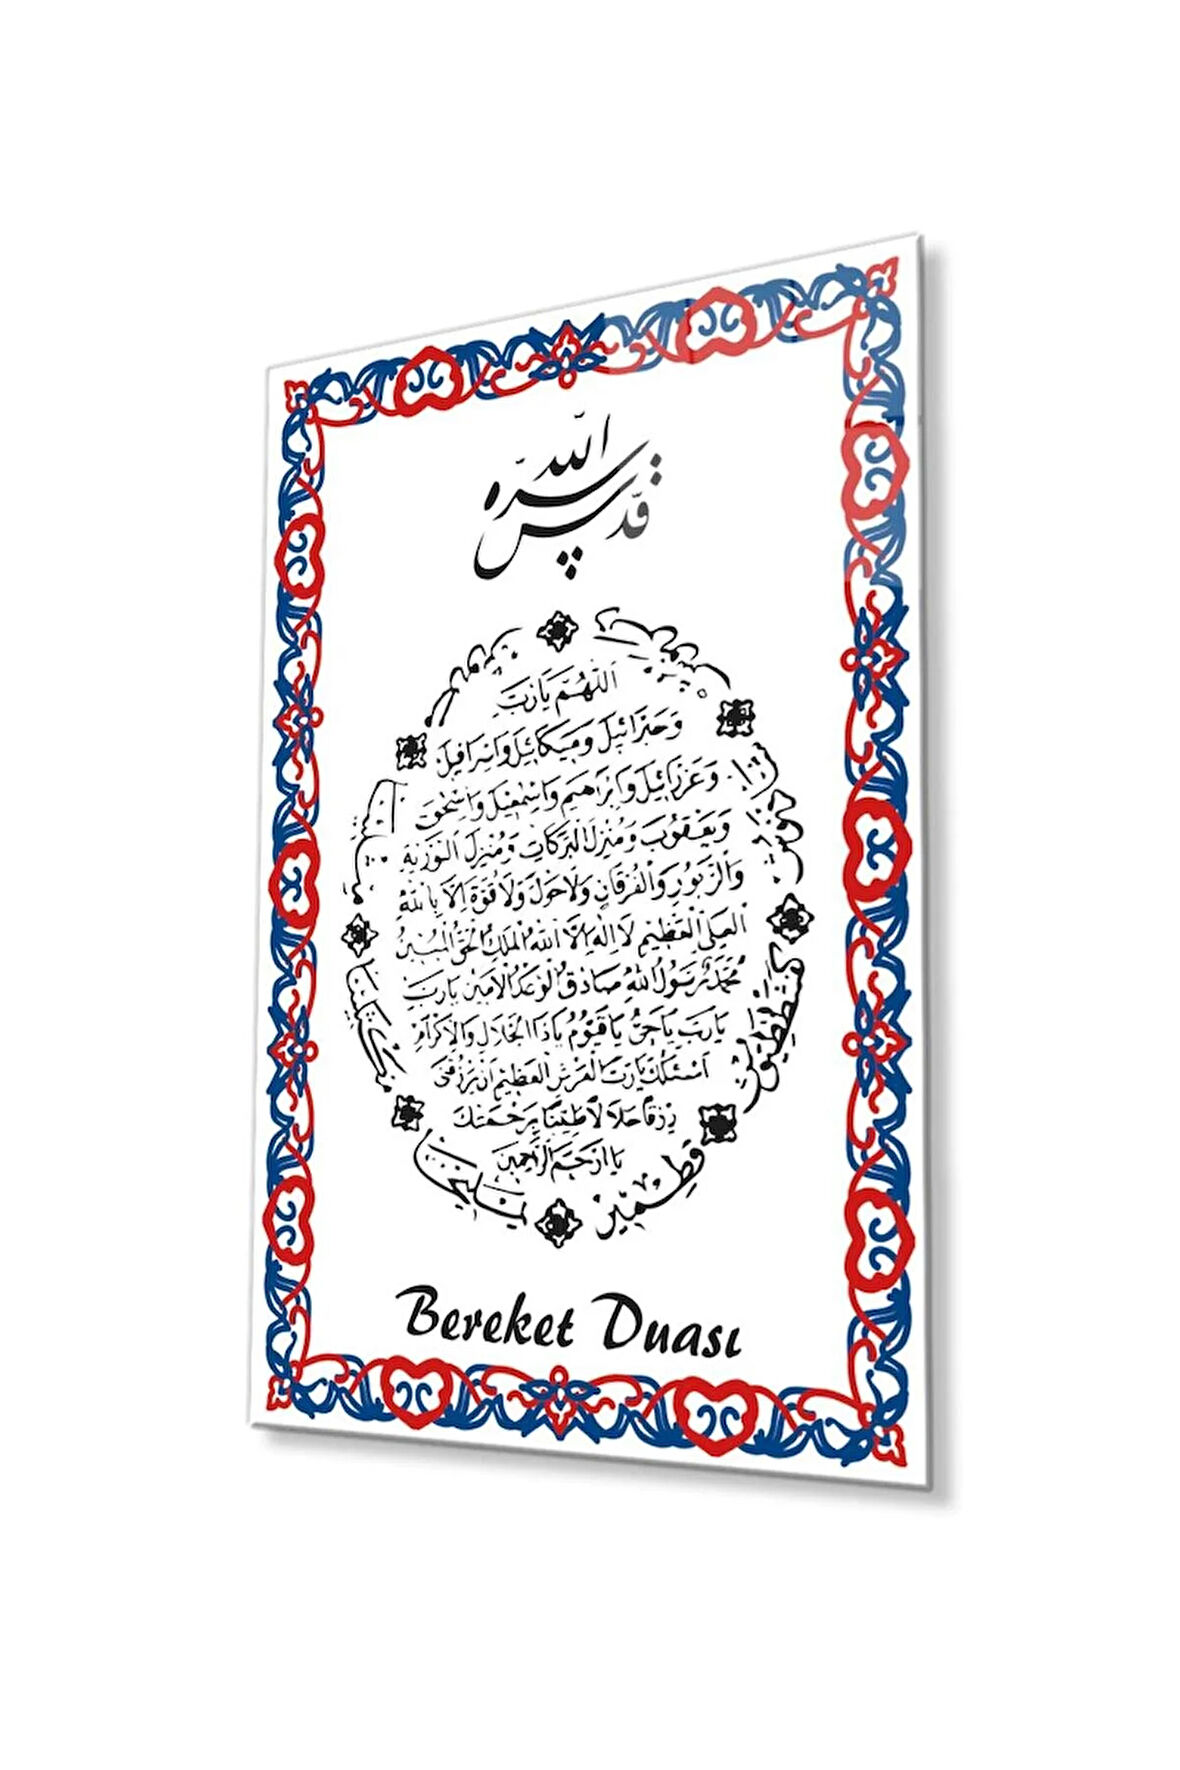 قدس الله سره
اللهم يا رب
وجبرائيل وميكائيل واسرافيل
وعزرائيل وابراهيم واسمعيل واسحق
ويعقوب ومنزل البركات ومنزل التورية
والزبور والفرقان ولا حول ولا قوة الا بالله
العلى العظيم لا اله الا الله الملك الحق المبين
محمد رسول الله صادق الوعد الامين يا رب
يا رب يا حي يا قيوم يا ذا الجلال والاكرام
اسئلك يا رب العرش العظيم ان ترزقنى
رزقا حلالا طيبا برحمتك
يا ارحم الراحمين
قطمير
يمليخا
Bereket Duası